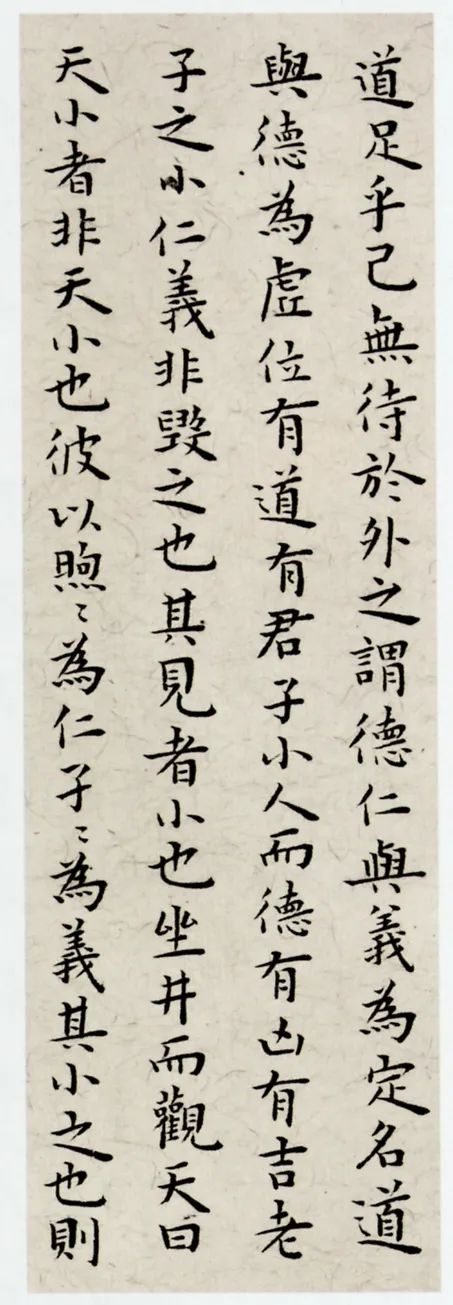 道足乎己無待於外之謂德仁與義為定名道
與德為虛位有道有君子小人而德有凶有吉老
子之小仁義非毀之也其見者小也坐井而觀天曰
天小者非天小也彼以煦〻為仁孑〻為義其小之也則